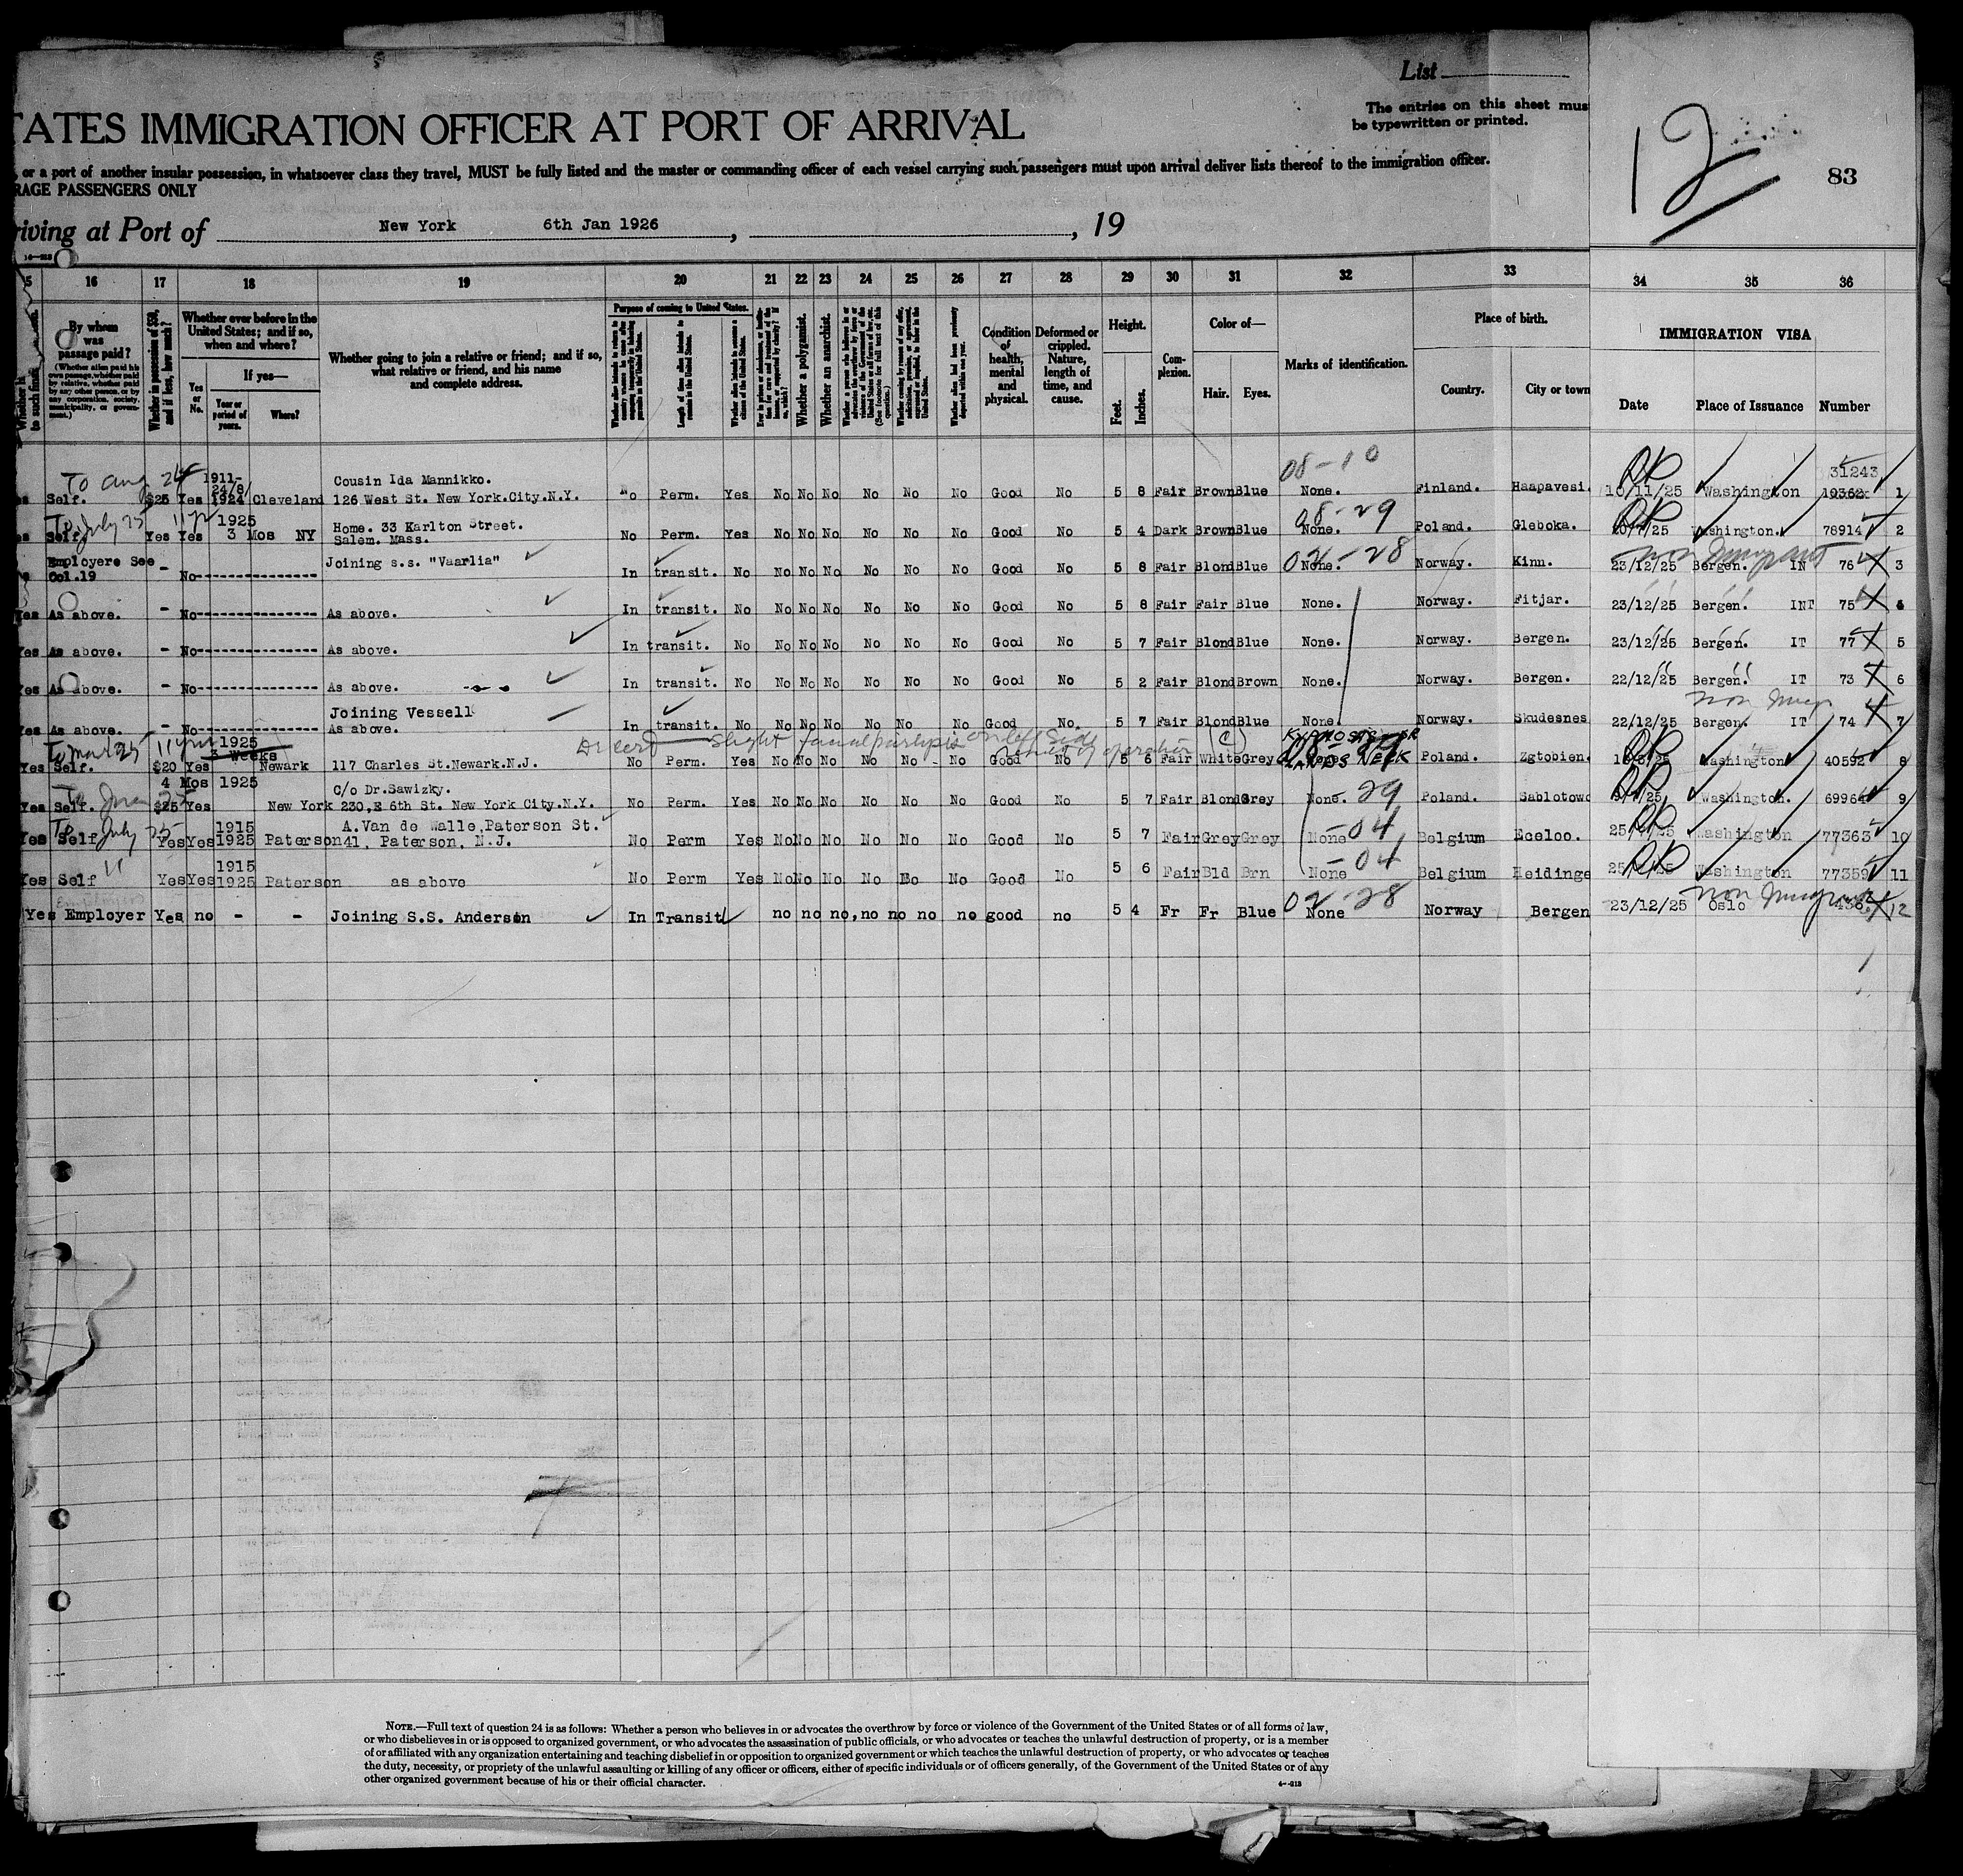 List
TATES IMMIGRATION OFFICER AT PORT OF ARRIVAL
The entries on this sheet mus
be typewritten or printed.
12
83
, or a port of another insular possession, in whatsoever class they travel, MUST be fully listed and the master or commanding officer of each vessel carrying such passengers must upon arrival deliver lists thereof to the immigration officer.
RAGE PASSENGERS ONLY
riving at Port of New York 6th Jan 1926 , , 19
5 16 17 18 19 20 21 22 23 24 25 26 27 28 29 30 31 32 33 34 35 36
By whom was passage paid?
(Whether alien paid his own passage, whether paid by relative, whether paid by any other person, or by any corporation, society, municipality, or government.)
Whether in possession of $50, and if less, how much?
Whether ever before in the United States; and if so, when and where?
Yes or No.
If yes—
Year or period of years.
Where?
Whether going to join a relative or friend; and if so, what relative or friend, and his name and complete address.
Purpose of coming to United States.
Length of time alien intends to remain in the United States.
Whether alien intends to become a citizen of the United States.
Whether a polygamist.
Whether an anarchist.
Condition of health, mental and physical.
Deformed or crippled. Nature, length of time, and cause.
Height.
Feet.
Inches.
Complexion.
Color of—
Hair.
Eyes.
Marks of identification.
Place of birth.
Country.
City or town
IMMIGRATION VISA
Date
Place of Issuance
Number
To Aug 24 1911- Cousin Ida Mannikko. 08-10 31243
Self. $25 Yes 24/8/ 1924 Cleveland 126 West St. New York.City.N.Y. No Perm. Yes No No No No No No Good No 5 8 Fair Brown Blue None. Finland. Haapavesi. 10/11/25 Washington 19362 1
To July 25 11 yr 1925 Home. 33 Karlton Street. 08-29
Self. Yes Yes 3 Mos NY Salem. Mass. No Perm. Yes No No No No No No Good No 5 4 Dark Brown Blue None. Poland. Gleboka. Washington. 78914 2
Employers See Joining s.s. "Vaarlia" 02-28 non Immigrant
Col.19 - No In transit. No No No No No No No Good No 5 8 Fair Blond Blue None. Norway. Kinn. 23/12/25 Bergen. IN 76 3
Yes As above. - No As above. In transit. No No No No No No No Good No 5 8 Fair Fair Blue None. Norway. Fitjar. 23/12/25 Bergen. INT 75 4
Yes As above. - No As above. In transit. No No No No No No No Good No 5 7 Fair Blond Blue None. Norway. Bergen. 23/12/25 Bergen. IT 77 5
Yes As above. - No As above. In transit. No No No No No No No Good No 5 2 Fair Blond Brown None. Norway. Bergen. 22/12/25 Bergen. IT 73 6
Joining Vessell non Immigr
Yes As above. - No As above. In transit. No No No No No No No Good No. 5 7 Fair Blond Blue None. Norway. Skudesnes 22/12/25 Bergen. IT 74 7
To Mar 25 11 yrs 1925 Dr cert Slight facial paralysis on left side caused by operation (C) KYPHOSIS
3 Weeks
Yes Self. $20 Yes Newark 117 Charles St.Newark.N.J. No Perm. Yes No No No No No - No Good No 5 6 Fair White Grey GLANDS NECK Poland. Zgtobien. Washington 40592 8
4 Mos 1925 c/o Dr.Sawizky.
Yes Self. $25 Yes New York 230,E 6th St. New York City.N.Y. No Perm. Yes No No No No No No Good No 5 7 Fair Blond Grey None. 29 Poland. Sablotowo Washington. 69964 9
To July 25 1915 A.Van de Walle,Paterson St.
Yes Self Yes Yes 1925 Paterson 41, Paterson, N.J. No Perm Yes No No No No No No Good No 5 7 Fair Grey Grey None -04 Belgium Eceloo. Washington 77363 10
" 1915
Yes Self Yes Yes 1925 Paterson as above No Perm Yes No No No No No No Good No 5 6 Fair Bld Brn None -04 Belgium Heidinge Washington 77359 11
02-28 non Immigrant
Yes Employer Yes no - - Joining S.S. Anderson In Transit no no no, no no no no good no 5 4 Fr Fr Blue None Norway Bergen 23/12/25 Oslo 12
NOTE.—Full text of question 24 is as follows: Whether a person who believes in or advocates the overthrow by force or violence of the Government of the United States or of all forms of law,
or who disbelieves in or is opposed to organized government, or who advocates the assassination of public officials, or who advocates or teaches the unlawful destruction of property, or is a member
of or affiliated with any organization entertaining and teaching disbelief in or opposition to organized government or which teaches the unlawful destruction of property, or who advocates or teaches
the duty, necessity, or propriety of the unlawful assaulting or killing of any officer or officers, either of specific individuals or of officers generally, of the Government of the United States or of any
other organized government because of his or their official character.